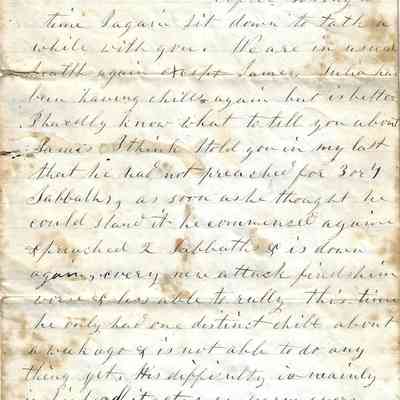 time I again sit down to talk a
while with you. We are in usual
health again except James. Julia has
been having chills again but is better
I hardly know what to tell you about
James I think I told you in my last
that he had not preached for 3 or 4
Sabbaths, as soon as he thought he
could stand it he commenced again
& preached 2 Sabbaths & is down
again, every new attack finds him
worse & less able to rally this time
he only had one distinct chill about
a week ago & is not able to do any
thing yet. His difficulty is mainly